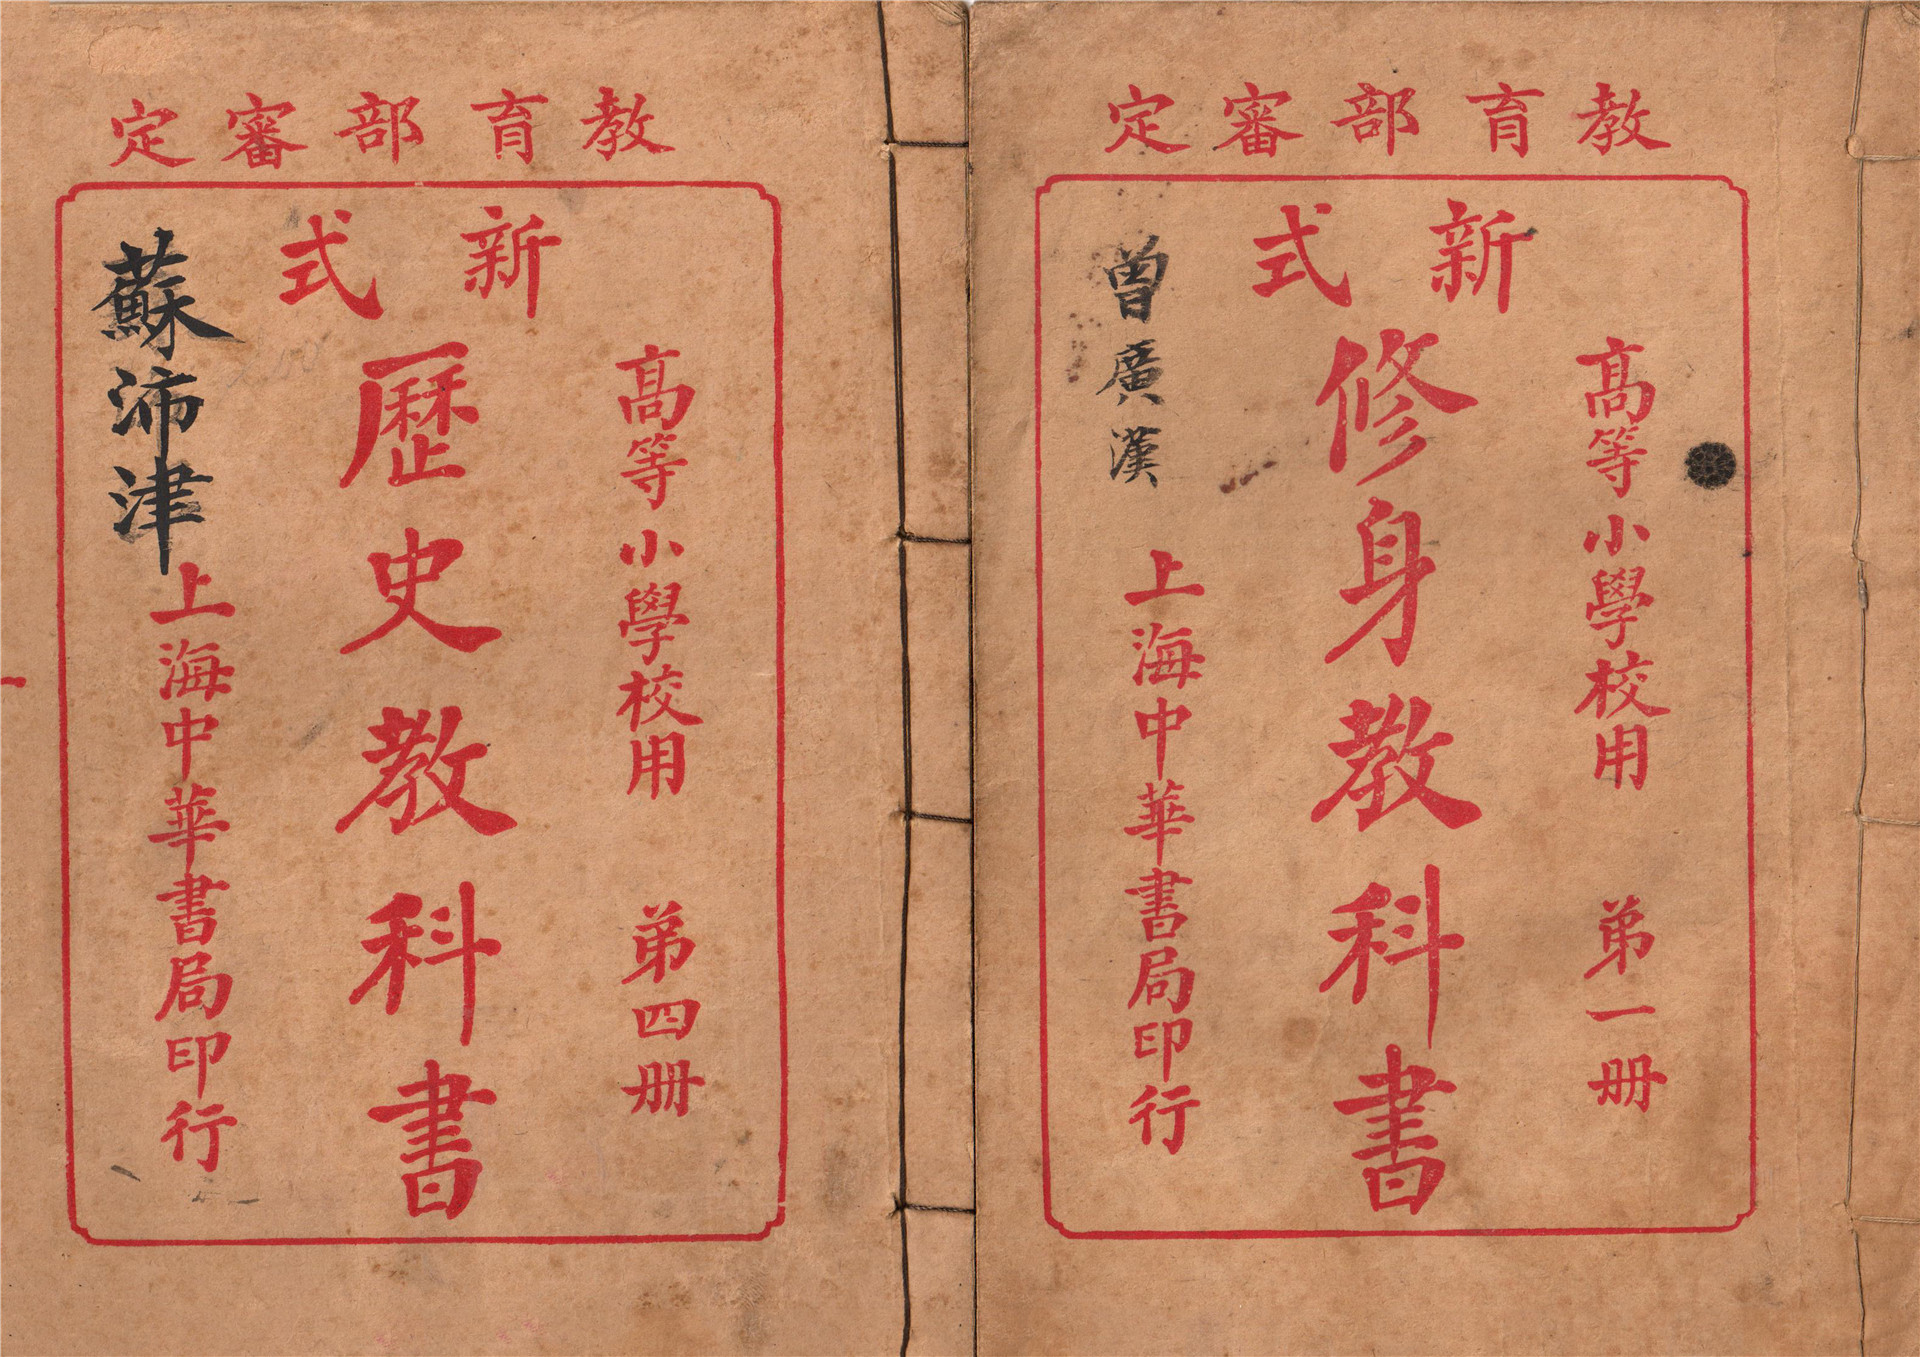 教育部審定
新式
高等小學校用 第一册
修身教科書
上海中華書局印行
曾廣漢
教育部審定
新式
高等小學校用 第四册
歷史教科書
上海中華書局印行
蘇沛津